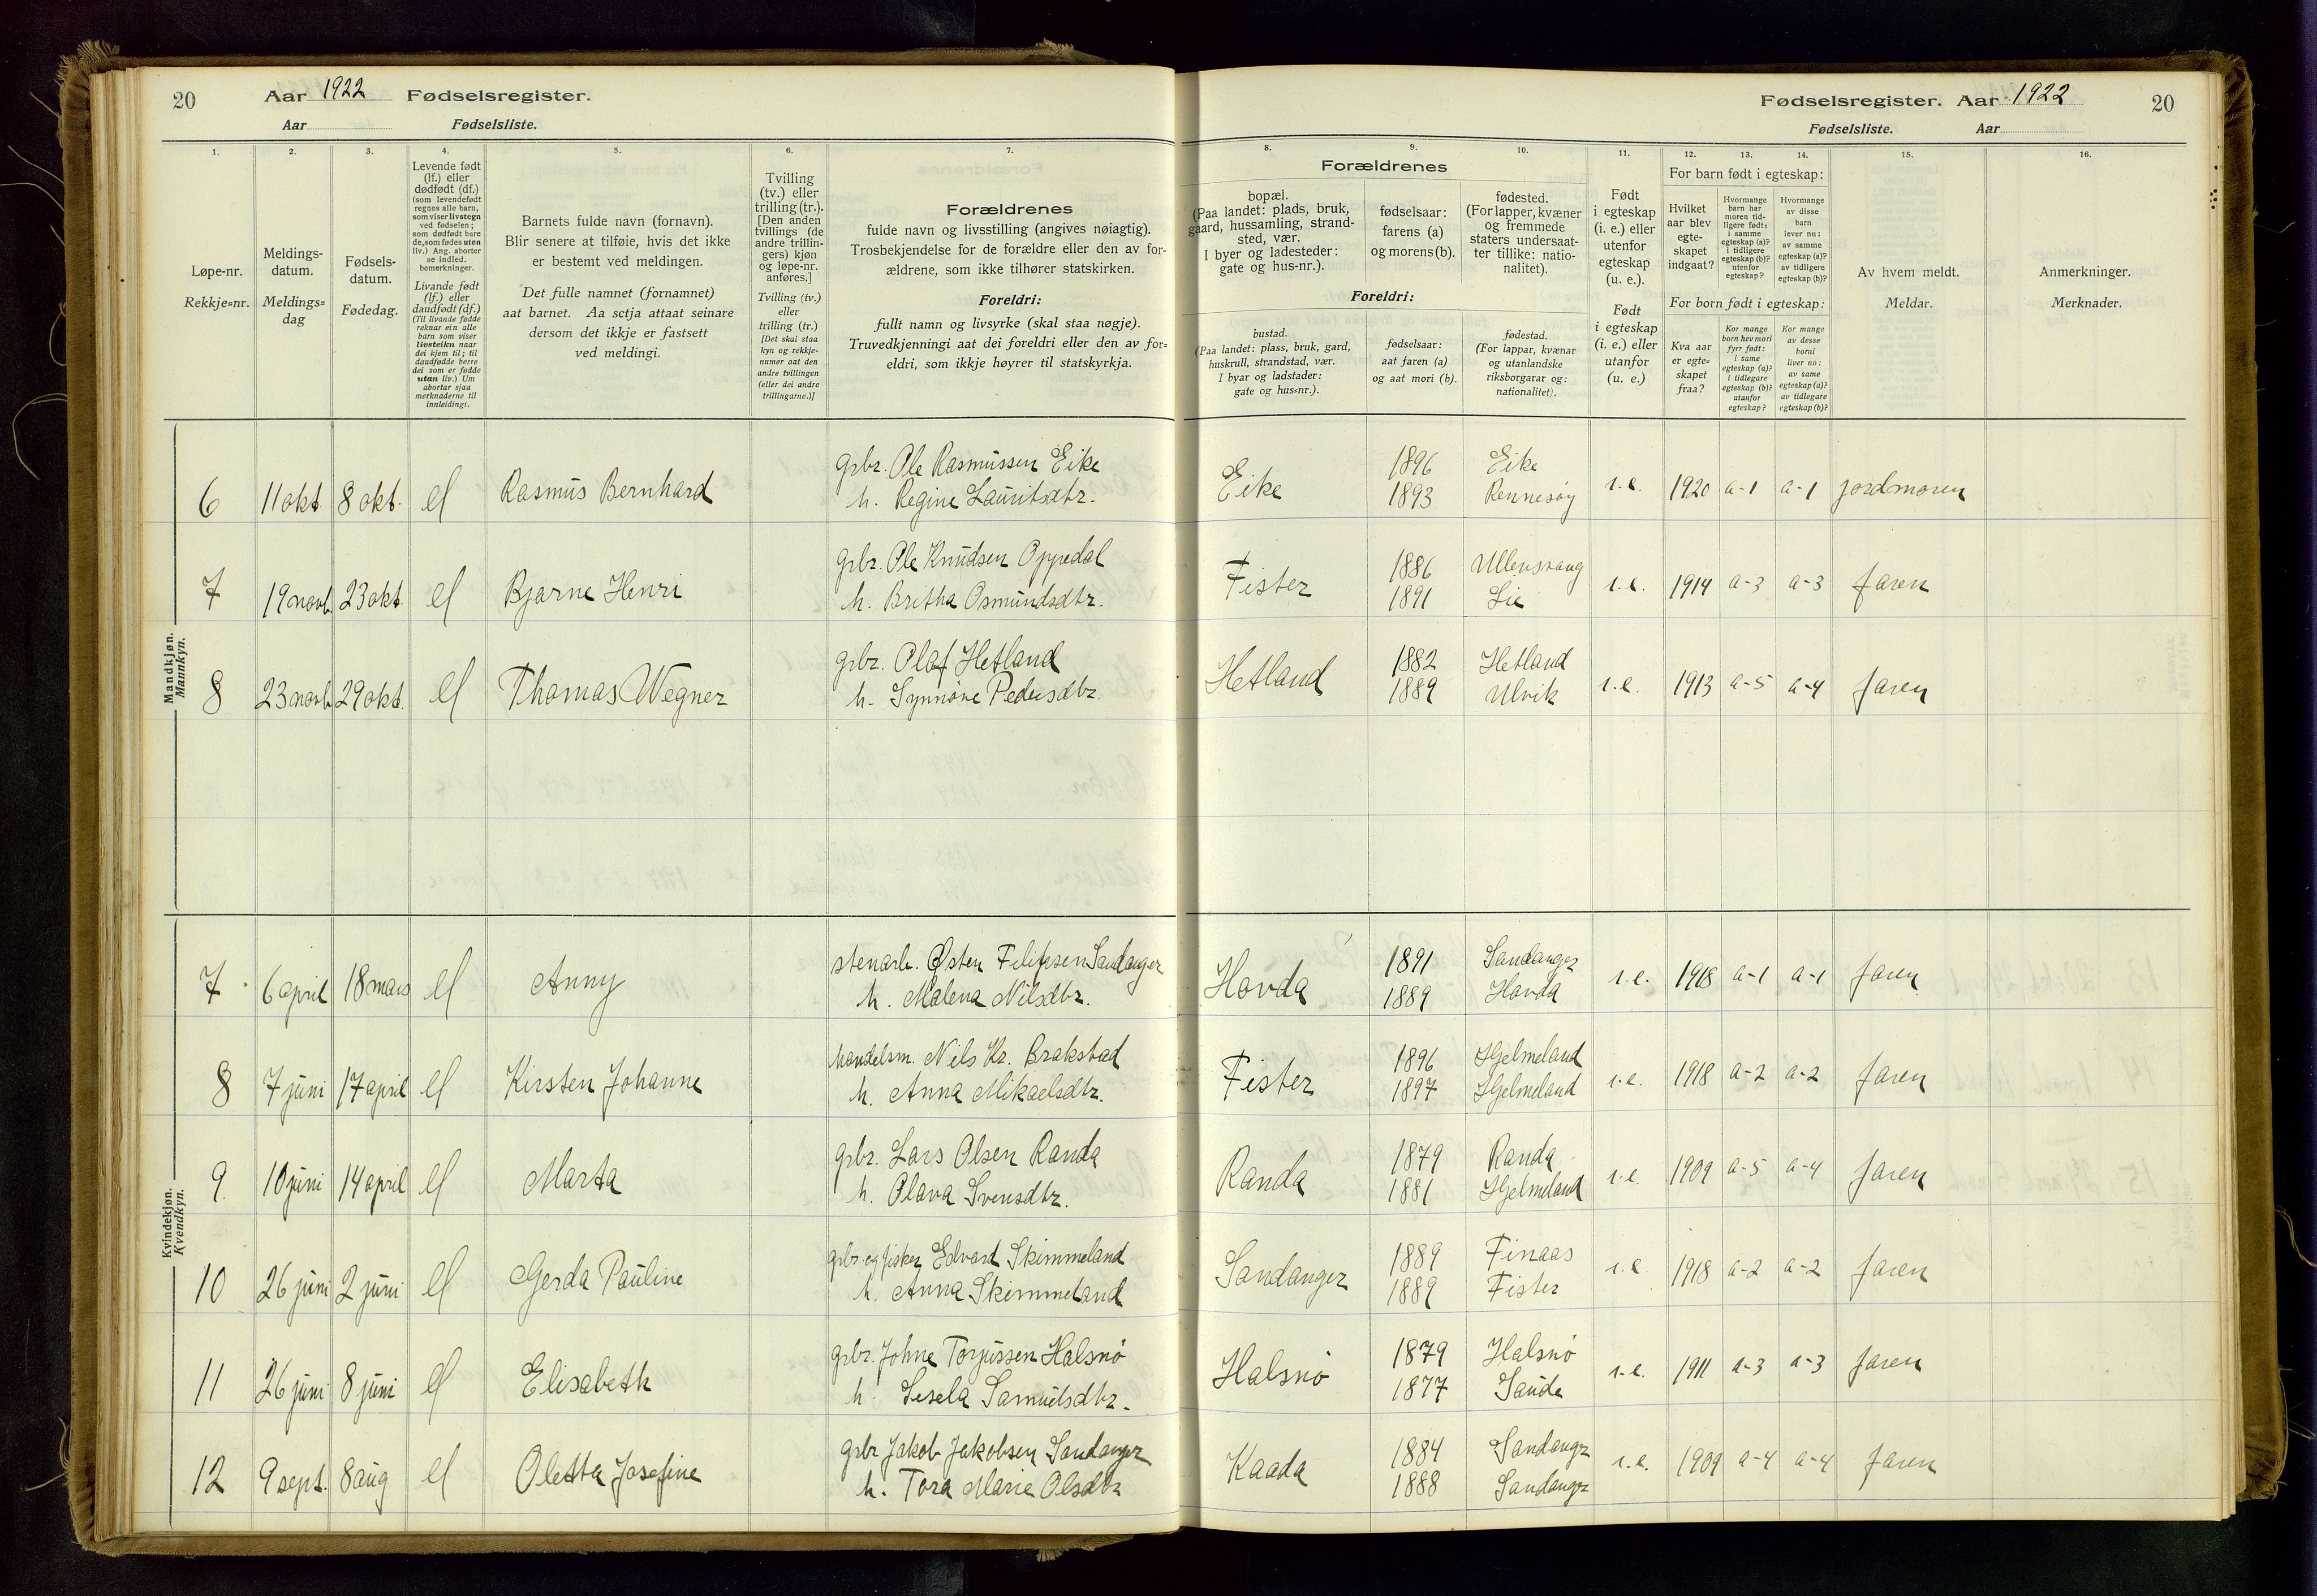 20 Aar 1922 Fødselsregister.
Aar Fødselsliste.
Fødselsregister. Aar 1922 20
Fødselsliste. Aar
1. 2. 3. 4. 5. 6. 7. 8. 9. 10. 11. 12. 13. 14. 15. 16.
Løpe-nr.
Rekkje=nr.
Meldings-
datum.
Meldings=
dag
Fødsels-
datum.
Fødedag.
Levende født
(lf.) eller
dødfødt (df.)
(som levendefødt
regnes alle barn,
som viser livstegn
ved fødselen;
som dødfødt bare
de, som fødes uten
liv.) Ang. aborter
se indled.
bemerkninger.
Livande født
(lf.) eller
daudfødt (df.)
(Til livande fødde
reknar ein alle
barn som viser
livsteikn naar
dei kjem til; til
daudfødde berre
dei som er fødde
utan liv.) Um
abortar sjaa
merknaderne til
innleidingi.
Barnets fulde navn (fornavn).
Blir senere at tilføie, hvis det ikke
er bestemt ved meldingen.
Det fulle namnet (fornamnet)
aat barnet. Aa setja attaat seinare
dersom det ikkje er fastsett
ved meldingi.
Tvilling
(tv.) eller
trilling (tr.).
[Den anden
tvillings (de
andre trillin-
gers) kjøn
og løpe-nr.
anføres.]
Tvilling (tv.)
eller
trilling (tr.)
[Det skal staa
kyn og rekkje-
numer aat den
andre tvillingen
(eller dei andre
trillingarne.)]
Forældrenes
fulde navn og livsstilling (angives nøiagtig).
Trosbekjendelse for de forældre eller den av for-
ældrene, som ikke tilhører statskirken.
Foreldri:
fullt namn og livsyrke (skal staa nøgje).
Truvedkjenningi aat dei foreldri eller den av for=
eldri, som ikkje høyrer til statskyrkja.
Forældrenes
bopæl.
(Paa landet: plads, bruk,
gaard, hussamling, strand-
sted, vær.
I byer og ladesteder:
gate og hus-nr.).
fødselsaar:
farens (a)
og morens (b).
fødested.
(For lapper, kvæner
og fremmede
staters undersaat-
ter tillike: natio-
nalitet).
Foreldri:
bustad.
(Paa landet: plass, bruk, gard,
huskrull, strandstad, vær.
I byar og ladstader:
gate og hus=nr.).
fødselsaar:
aat faren (a)
og aat mori (b).
fødestad.
(For lappar, kvænar
og utanlandske
riksborgarar og:
nationalitet).
Født
i egteskap
(i. e.) eller
utenfor
egteskap
(u. e.).
Født
i egteskap
(i. e.) eller
utanfor
(u. e.)
For barn født i egteskap:
Hvilket
aar blev
egte-
skapet
indgaat?
Hvormange
barn har
moren tid-
ligere født:
i samme
egteskap (a)?
i tidligere
egteskap (b)?
utenfor
egteskap?
Hvormange
av disse
barn
lever nu:
av samme
egteskap (a)?
av tidligere
egteskap (b)?
For born født i egteskap:
Kva aar
er egte=
skapet
fraa?
Kor mange
born hev mori
fyrr født:
i same
egteskap (a)?
i tidlegare
egteskap (b)?
utanfor
egteskap?
Kor mange
av desse
borni
liver no:
av same
egteskap (a)?
av tidlegare
egteskap (b)?
Av hvem meldt.
Meldar.
Anmerkninger.
Merknader.
Mandkjøn.
Mannkyn.
6 11 okt. 8 okt. lf Rasmus Bernhard grbr. Ole Rasmussen Eike Eike 1896 Eike i.e. 1920 a-1 a-1 jordmoren
h. Regine Lauritsdtr. 1893 Rennesøy
7 19 novb. 23 okt. lf Bjarne Henri grbr. Ole Knudsen Oppedal Fister 1886 Ullensvang i.e. 1914 a-3 a-3 faren
h. Britha Osmundsdtr. 1891 Lie
8 23 novb. 29 okt. lf Thomas Wegner grbr. Olaf Hetland Hetland 1882 Hetland i.e. 1913 a-5 a-4 faren
h. Synnøve Pedersdtr. 1889 Ulvik
Kvindekjøn.
Kvendkyn.
7 6 april 18 mars lf Anny stenarb. Østen Filipsen Sandanger Hovda 1891 Sandanger i.e. 1918 a-1 a-1 faren
h. Malena Nilsdtr. 1889 Hovda
8 7 juni 17 april lf Kirsten Johanne handelsm. Nils Kr. Brakstad Fister 1896 Hjelmeland i.e. 1918 a-2 a-2 faren
h. Anna Mikaelsdtr. 1897 Hjelmeland
9. 10 juni 14 april lf Marta grbr. Lars Olsen Randa Randa 1879 Randa i.e. 1909 a-5 a-4 faren
h. Olava Svensdtr. 1881 Hjelmeland
10 26 juni 2 juni lf Gerda Pauline grbr og fisker Edvard Skimmeland Sandanger 1889 Finaas i.e. 1918 a-2 a-2 faren
h. Anna Skimmeland 1889 Fister
11 26 juni 8 juni lf Elisabeth grbr. Johne Torjussen Halsnø Halsnø 1879 Halsnø i.e. 1911 a-3 a-3 faren
h. Sesela Samuelsdtr. 1877 Saude
12 9 sept. 8 aug lf Oletta Josefine grbr Jakob Jakobsen Sandanger Kaada 1884 Sandanger i.e. 1909 a-4 a-4 faren
h. Tora Marie Olsdtr 1888 Sandanger